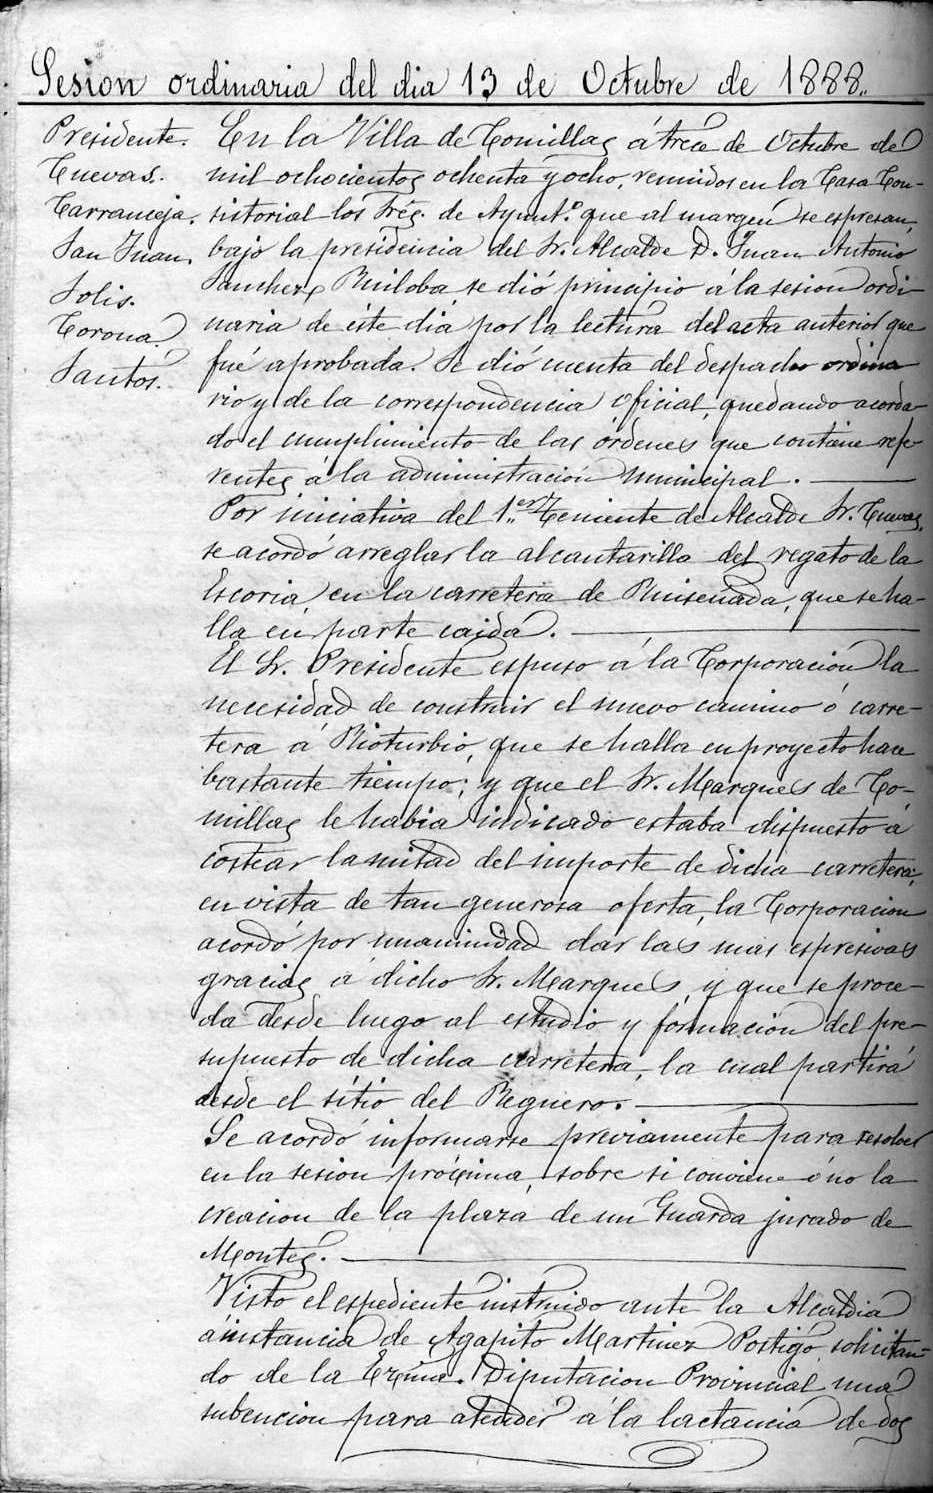 Sesion ordinaria del dia 13 de Octubre de 1888.,
Presidente.
Cuevas.
Tarramieja.
San Juan.
Solis.
Corona.
Santos.
En la Villa de Comillas á trece de Octubre de
mil ochocientos ochenta y ocho, reunidos en la Casa Con-
sistorial los Sres. de Ayunt.º que al margen se espresan,
bajo la presidencia del Sr. Alcalde D. Juan Antonio
Sanchez Ruiloba, se dió principio á la sesion ordi-
naria de éste dia por la lectura del acta anterior que
fué aprobada. Se dió cuenta del despacho ordina
rio y de la correspondencia oficial, quedando acorda-
do el cumplimiento de las órdenes que contiene refe-
rentes á la administración municipal.
Por iniciativa del 1.er Teniente de Alcalde Sr. Cuevas,
se acordó arreglar la alcantarilla del regato de la
Escoria, en la carretera de Ruiseñada, que se ha-
lla en parte caida.
El Sr. Presidente espuso á la Corporación la
necesidad de construir el nuevo camino ó carre-
tera á Rioturbio, que se halla en proyecto hace
bastante tiempo; y que el Sr. Marques de Co-
millas le habia indicado estaba dispuesto á
costear la mitad del importe de dicha carretera;
en vista de tan generosa oferta, la Corporacion
acordó por unanimidad dar las mas espresivas
gracias á dicho Sr. Marques, y que se proce-
da desde luego al estudio y formación del pre-
supuesto de dicha carretera, la cual partirá
desde el sítio del Reguero.
Se acordó informarse previamente para resolver
en la sesion próxima, sobre si conviene ó no la
creacion de la plaza de un Guarda jurado de
Montes.
Visto el espediente instruido ante la Alcaldia
á instancia de Agapito Martinez Postigo, solicitan-
do de la Exma. Diputacion Provincial una
subencion para atender á la lactancia de dos